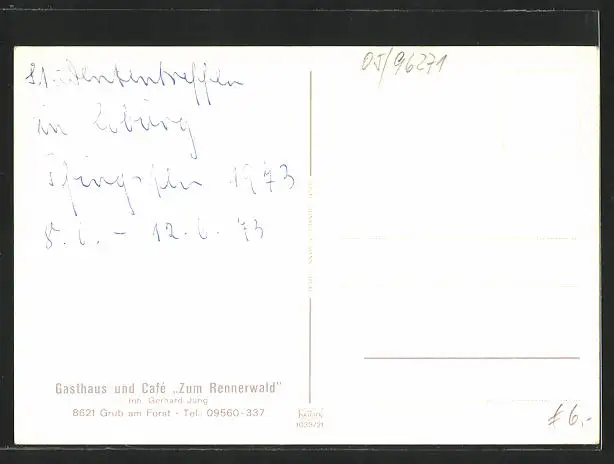 Studententreffen
in Coburg
Pfingsten 1973
8.6. - 12.6.73
OJ/96271
Gasthaus und Café „Zum Rennerwald"
Inh. Gerhard Jung
8621 Grub am Forst - Tel. 09560-337
1033/21
£ 6,-